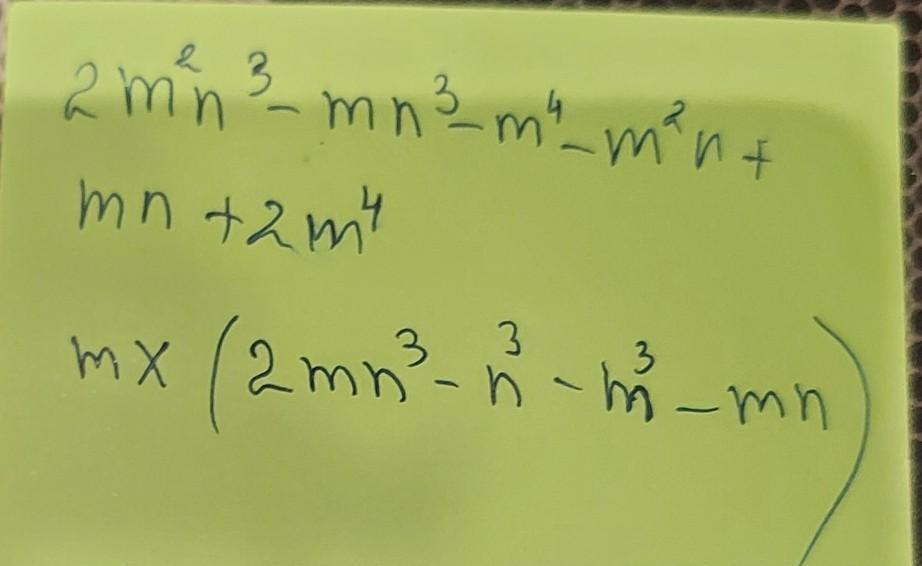 2m²n³ - mn³ - m⁴ - m²n +
mn + 2m⁴
m x (2mn³ - n³ - m³ - mn)